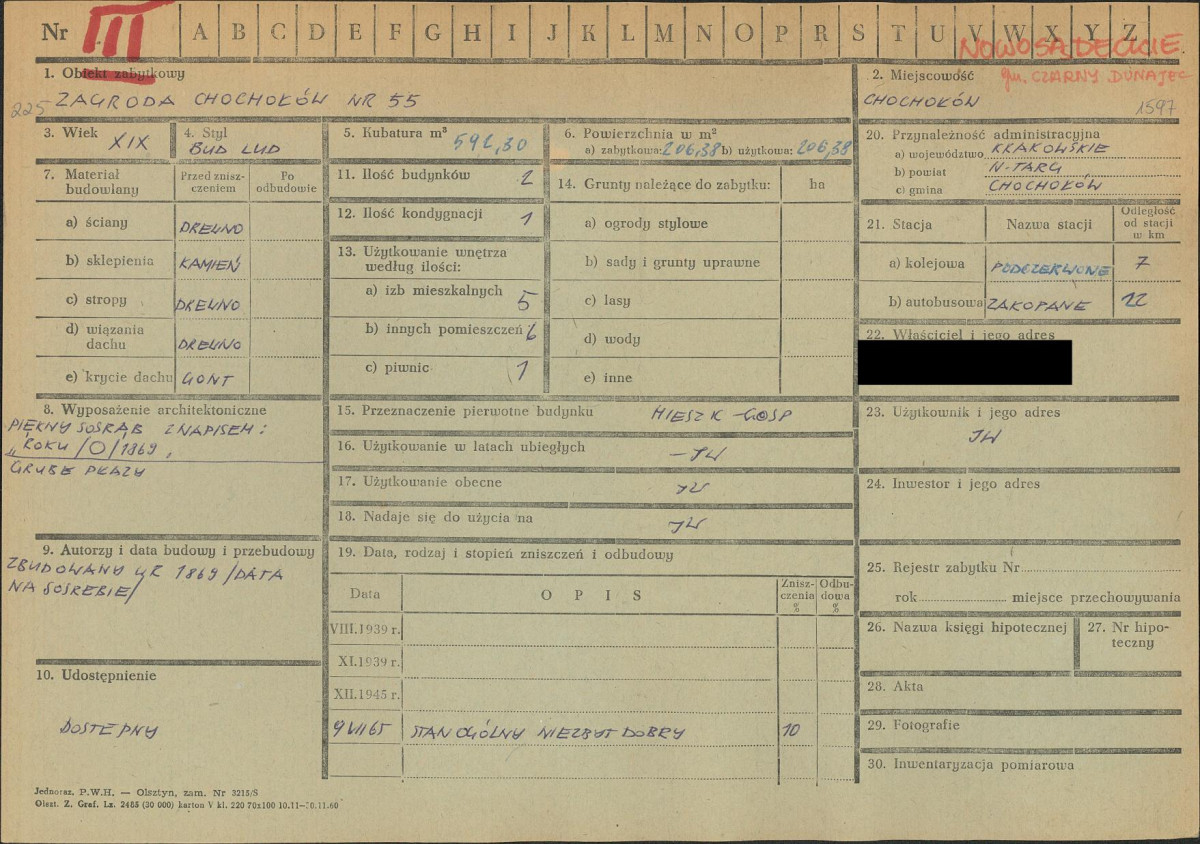 Nr III A B C D E F G H I J K L M N O P R S T U V W X Y Z
NOWOSĄDECKIE
gm. CZARNY DUNAJEC
1. Obiekt zabytkowy
225 ZAGRODA CHOCHOŁÓW NR 55
2. Miejscowość
CHOCHOŁÓW
1597
3. Wiek
XIX
4. Styl
BUD LUD
5. Kubatura m³
592,30
6. Powierzchnia w m²
a) zabytkowa: 206,38 b) użytkowa: 206,38
7. Materiał budowlany
Przed znisz-
czeniem
Po
odbudowie
a) ściany DREWNO
b) sklepienia KAMIEŃ
c) stropy DREWNO
d) wiązania
dachu DREWNO
e) krycie dachu GONT
8. Wyposażenie architektoniczne
PIĘKNY SOSRĄB Z NAPISEM:
„ROKU /O/ 1869,
GRUBE PŁAZY
9. Autorzy i data budowy i przebudowy
ZBUDOWANY W R 1869 /DATA
NA SOSREBIE/
10. Udostępnienie
DOSTEPNY
11. Ilość budynków 2
12. Ilość kondygnacji 1
13. Użytkowanie wnętrza
według ilości:
a) izb mieszkalnych 5
b) innych pomieszczeń 6
c) piwnic 1
14. Grunty należące do zabytku: ha
a) ogrody stylowe
b) sady i grunty uprawne
c) lasy
d) wody
e) inne
15. Przeznaczenie pierwotne budynku MIESZK-GOSP
16. Użytkowanie w latach ubiegłych -JW
17. Użytkowanie obecne JW
18. Nadaje się do użycia na JW
19. Data, rodzaj i stopień zniszczeń i odbudowy
Data
OPIS
Znisz-
czenia
%
Odbu-
dowa
%
VIII.1939 r.
XI.1939 r.
XII.1945 r.
9 VII 65 STAN OGÓLNY NIEZBYT DOBRY 10
20. Przynależność administracyjna
a) województwo KRAKOWSKIE
b) powiat N-TARG
c) gmina CHOCHOŁÓW
21. Stacja
Nazwa stacji
Odległość
od stacji
w km
a) kolejowa PODCZERWONE 7
b) autobusowa ZAKOPANE 12
22. Właściciel i jego adres
23. Użytkownik i jego adres
JW
24. Inwestor i jego adres
25. Rejestr zabytku Nr
rok miejsce przechowywania
26. Nazwa księgi hipotecznej
27. Nr hipo-
teczny
28. Akta
29. Fotografie
30. Inwentaryzacja pomiarowa
Jednoraz. P.W.H. — Olsztyn, zam. Nr 3215/S
Olszt. Z. Graf. Lz. 2455 (30 000) karton V kl. 220 70x100 10.11—30.11.60